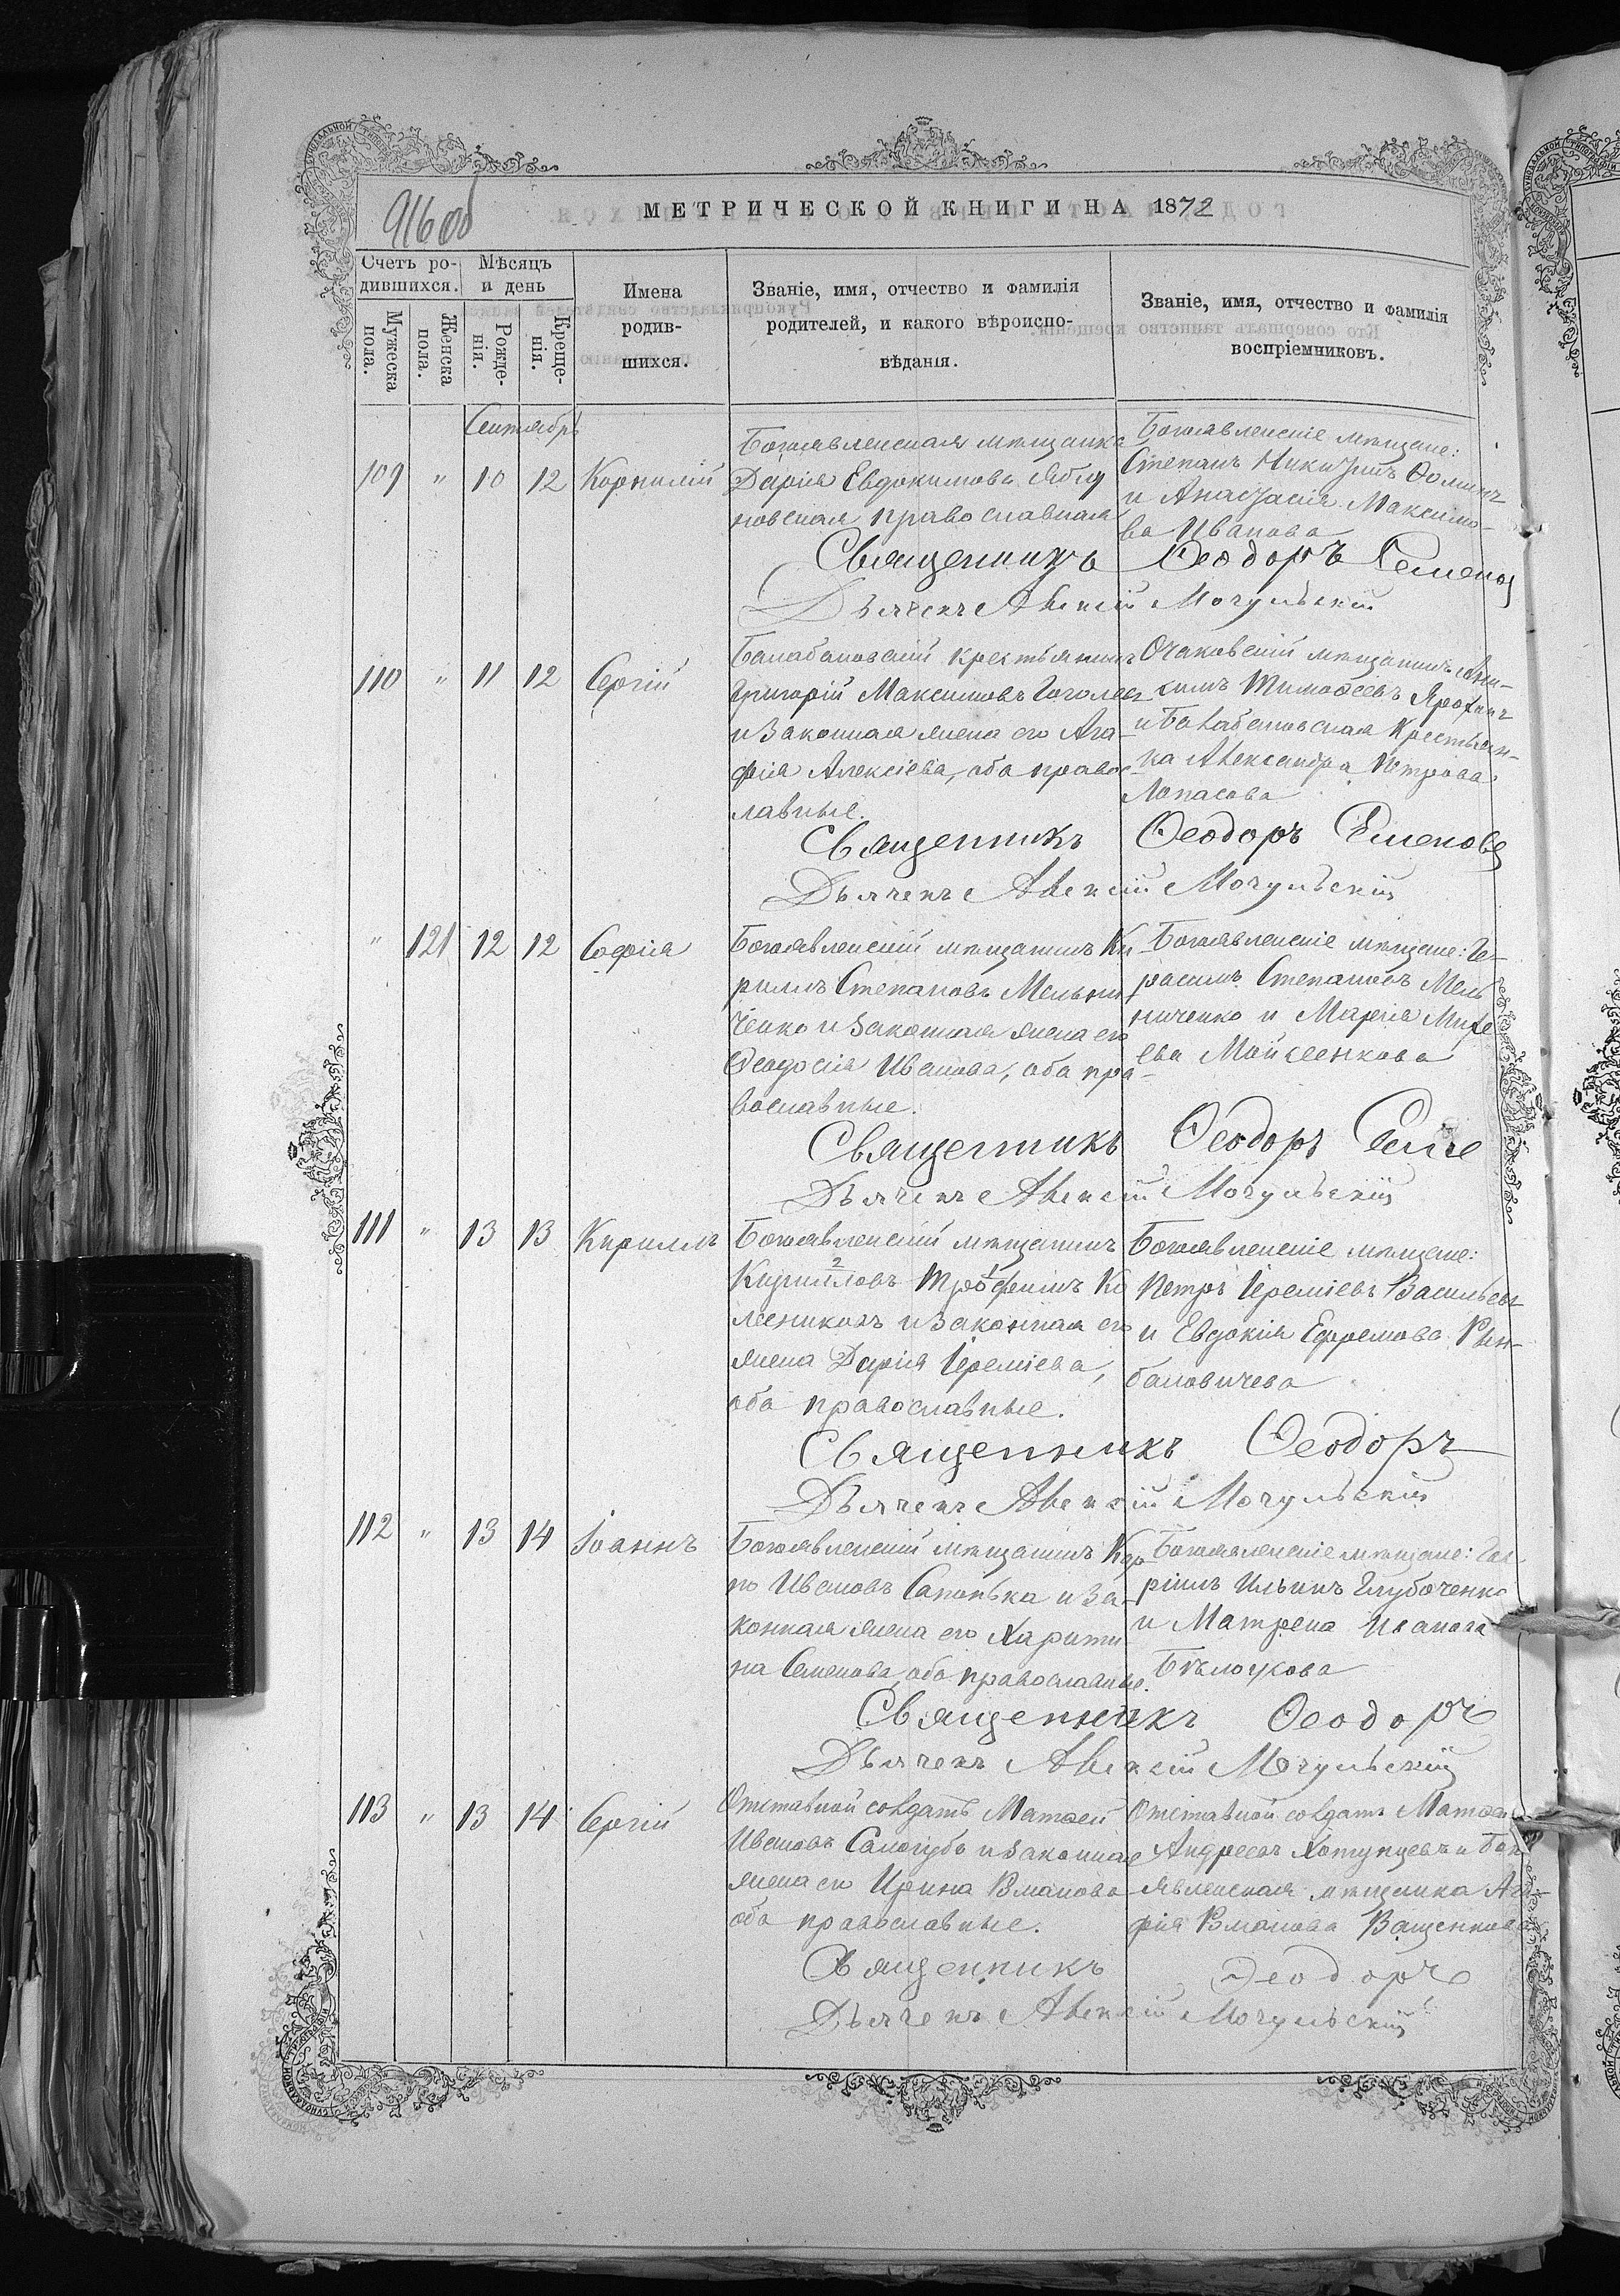 916 об
МЕТРИЧЕСКОЙ КНИГИ НА 1872
Счетъ родившихся.
Мѣсяцъ и день
Мужеска пола.
Женска пола.
Рожденія.
Крещенія.
Имена родившихся.
Званіе, имя, отчество и фамилія
родителей, и какого вѣроиспо-
вѣданія.
Званіе, имя, отчество и фамилія
воспріемниковъ.
Сентябрь
109 " 10 12 Корнилій
Богоявленская мѣщанка
Дарія Евдокимова Яблу
новская православная
Богоявленскіе мѣщане:
Степанъ Никитинъ Ѳоминъ
и Анастасія Максимо-
ва Иванова
Священникъ Ѳеодоръ Семенов
Дьячекъ Алексій Мочульскій
110 " 11 12 Сергій
Балабановскій крестьянинъ
Григорій Максимовъ Гоголевъ
и законная жена его Ага-
фія Алексіева, оба право-
лавные.
Очаковскій мѣщанинъ Аки-
кимъ Тимоѳеевъ
и Балабановская Крестьян-
ка Александра Петрова
Лопасова
Священникъ Ѳеодоръ Семенов
Дьячекъ Алексій Мочульскій
" 121 12 12 Софія
Богоявленскій мѣщанинъ Ки
рилъ Степановъ Мельни
ченко и законная жена его
Ѳеодосія Иванова, оба пра-
вославные.
Богоявленскіе мѣщане: Ге-
расимъ Степановъ Мель
ниченко и Марія Михе
ева Мойсеенкова
Священникъ Ѳеодоръ Семе
Дьячекъ Алексій Мочульскій
111 " 13 13 Кириллъ
Богоявленскій мѣщанинъ
Кирилловъ Трофимъ Ко
лесниковъ и законная его
жена Дарія Іереміева,
оба православные.
Богоявленскіе мѣщане:
Петръ Іереміевъ Васильевъ
и Евдокія Ефремова
бановичева
Священникъ Ѳеодоръ
Дьячекъ Алексій Мочульскій
112 " 13 14 Іоаннъ
Богоявленскій мѣщанинъ Кар
по Ивановъ Сапонька и за-
конная жена его Харити
на Семенова, оба православные.
Богоявленскіе мѣщане: Гав-
ріилъ Ильинъ Глубоченко
и Матрена Иванова
Бѣлоусова
Священникъ Ѳеодоръ
Дьячекъ Алексій Мочульскій
113 " 13 14 Сергій
Отставной солдатъ Матвей
Ивановъ Самогубъ и законная
жена его Ирина Романова
оба православные.
Отставной солдатъ Матвей
Андреевъ Хотунцевъ и Бого
явленская мѣщанка Ага-
фія Романова Ващенкова
Священникъ Ѳеодоръ
Дьячекъ Алексій Мочульскій